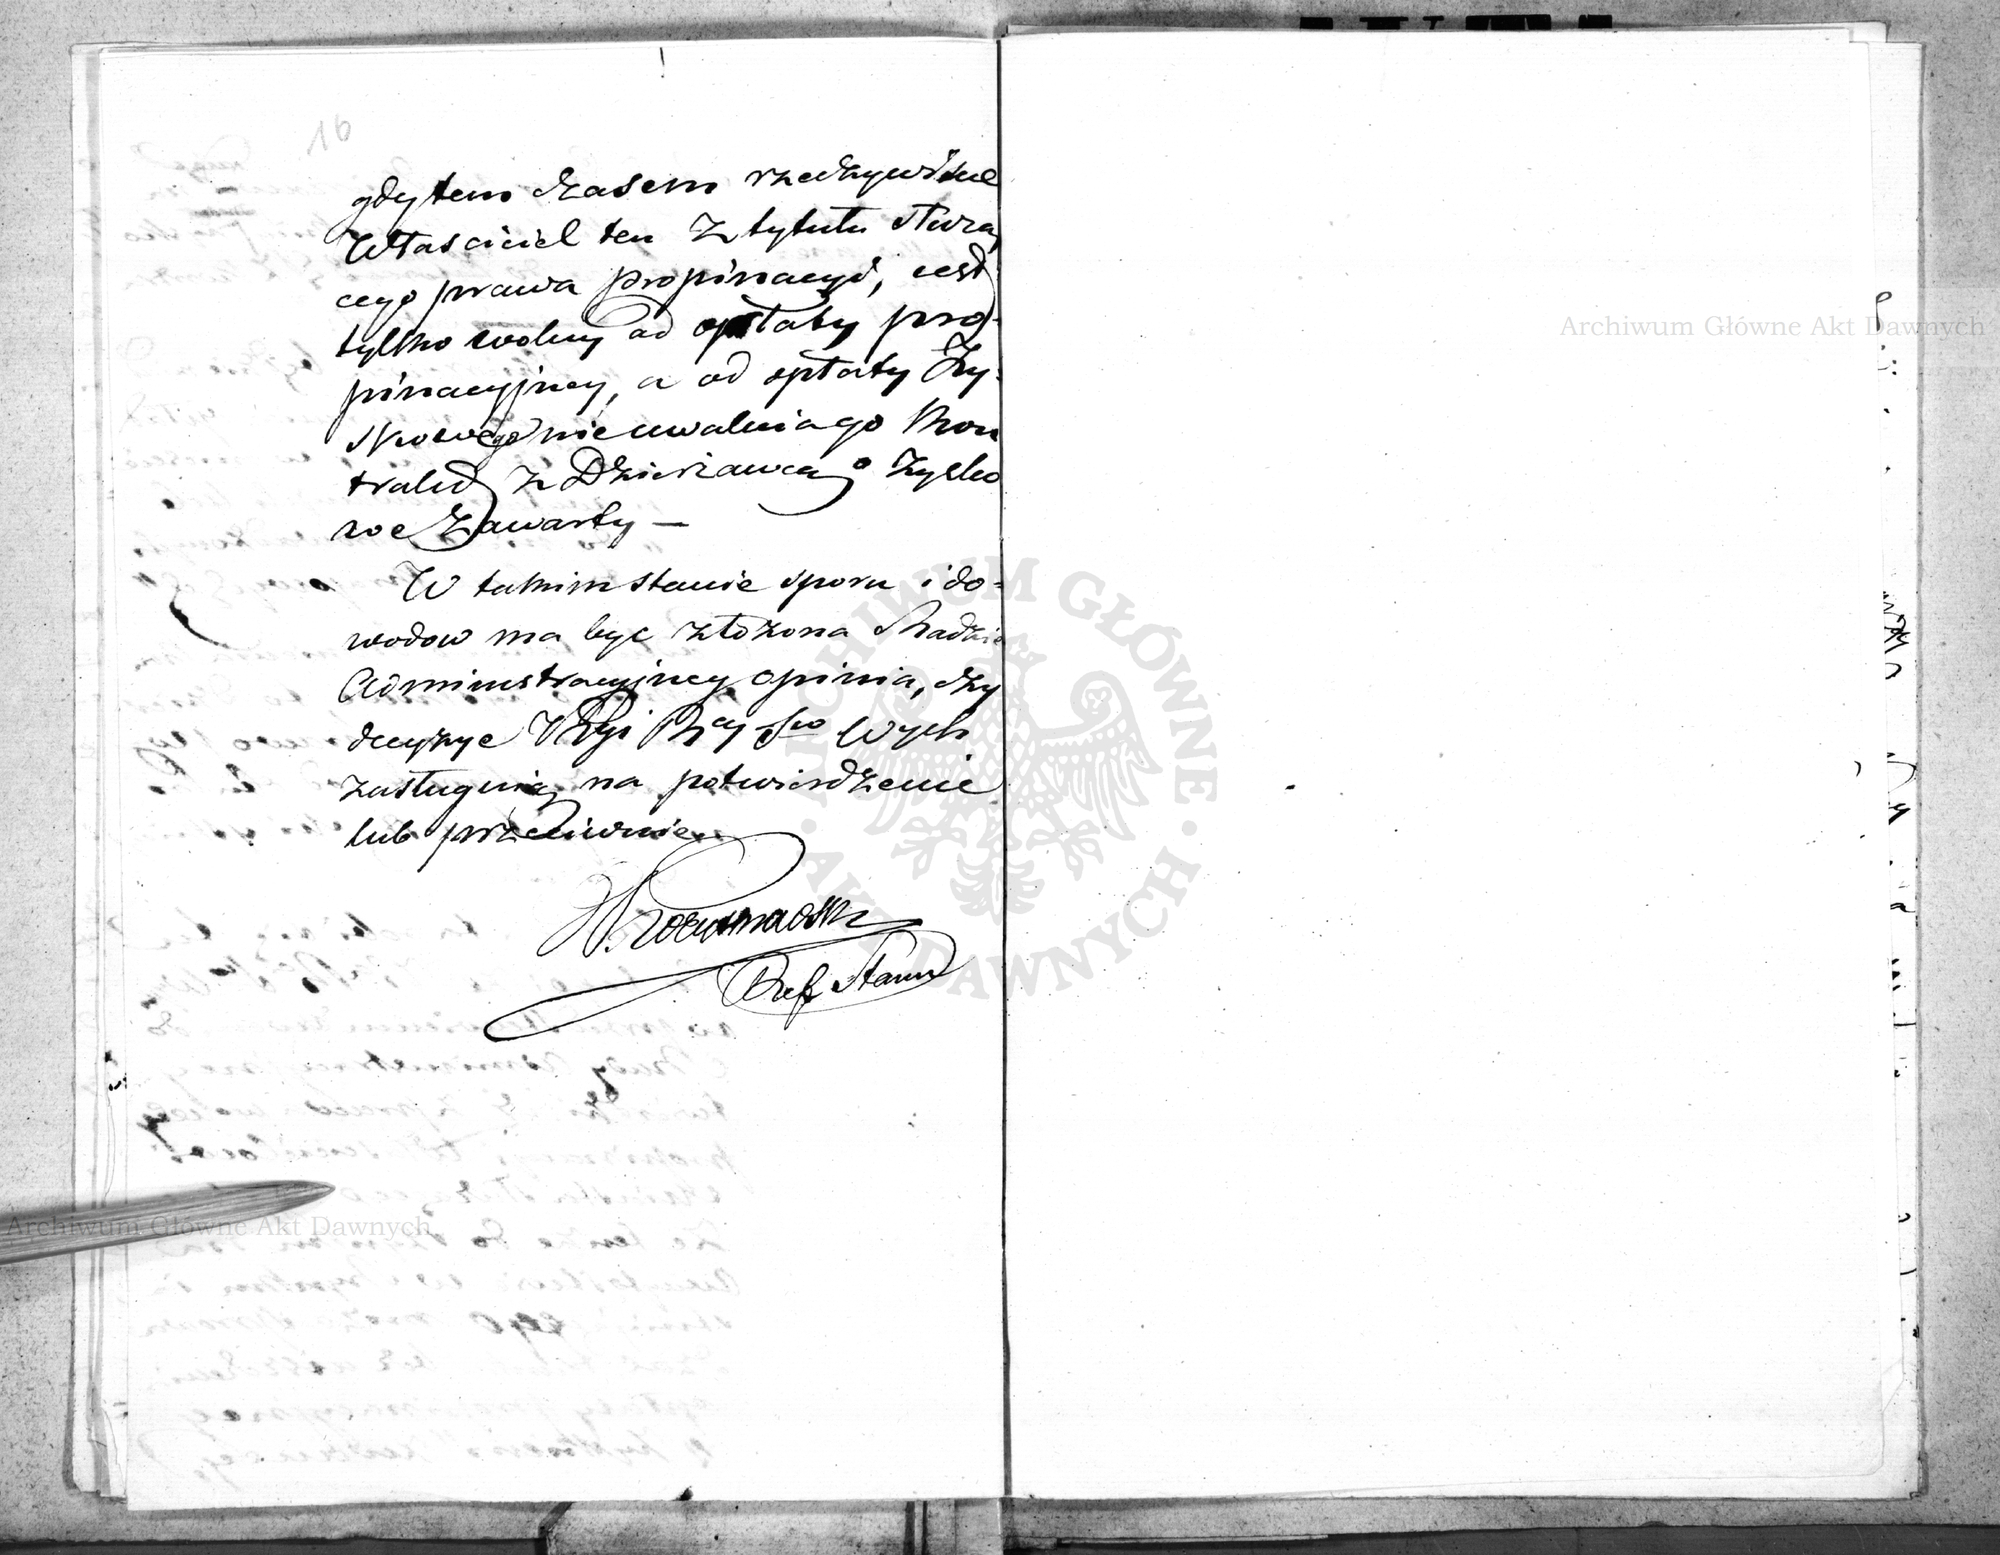 16
gdy tem czasem rzeczywiście
Właściciel ten z tytułu służą
cego prawa propinacyi, iest
tylko wolny od opłaty pro-
pinacyjney, a od opłaty Zy-
skowego nieuwalnia go Kon
trakt z Dzierżawcą Zysko
we zawarty —
W takim stanie sporu i do-
wodow ma byc złożona Radzie
Administracyjney opinia, czy
decyzye
zasługuią na potwierdzenie
lub przeciwnie.
Ref Stanu
Archiwum Główne Akt Dawnych
Archiwum Główne Akt Dawnych
ARCHIWUM GŁÓWNE · AKT DAWNYCH ·